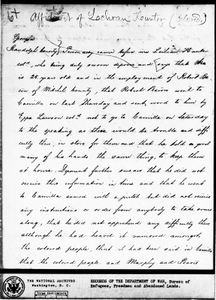 Affidavit of Lochran Fountry
Georgia
Randolph county Personally came before me Zachariah
who being duly sworn deposes and says that she
is 28 years old and in the employment of Robert
of Mitchell county, that Robert Brown went to
Camilla on last Thursday and sent word to him by
Eppa Lawson not to go to Camilla on Saturday
to the speaking as there would be trouble and diffi
culty then, in store for them and that he told a good
many of his hands the same thing, to keep them
at home. Deponent further swears that he did not
receive this information in time and that he went
to Camilla armed with a pistol but did not receive
any instructions or orders from anybody to take arms
along, that he did not apprehend any difficulty then
although he had heard it rumored amongst
the colored people, that it had been said in Camilla
that the colored people and Murphy and Pierce
THE NATIONAL ARCHIVES
WASHINGTON, D. C.
RECORDS OF THE DEPARTMENT OF WAR, Bureau of
Refugees, Freedmen and Abandoned Lands.